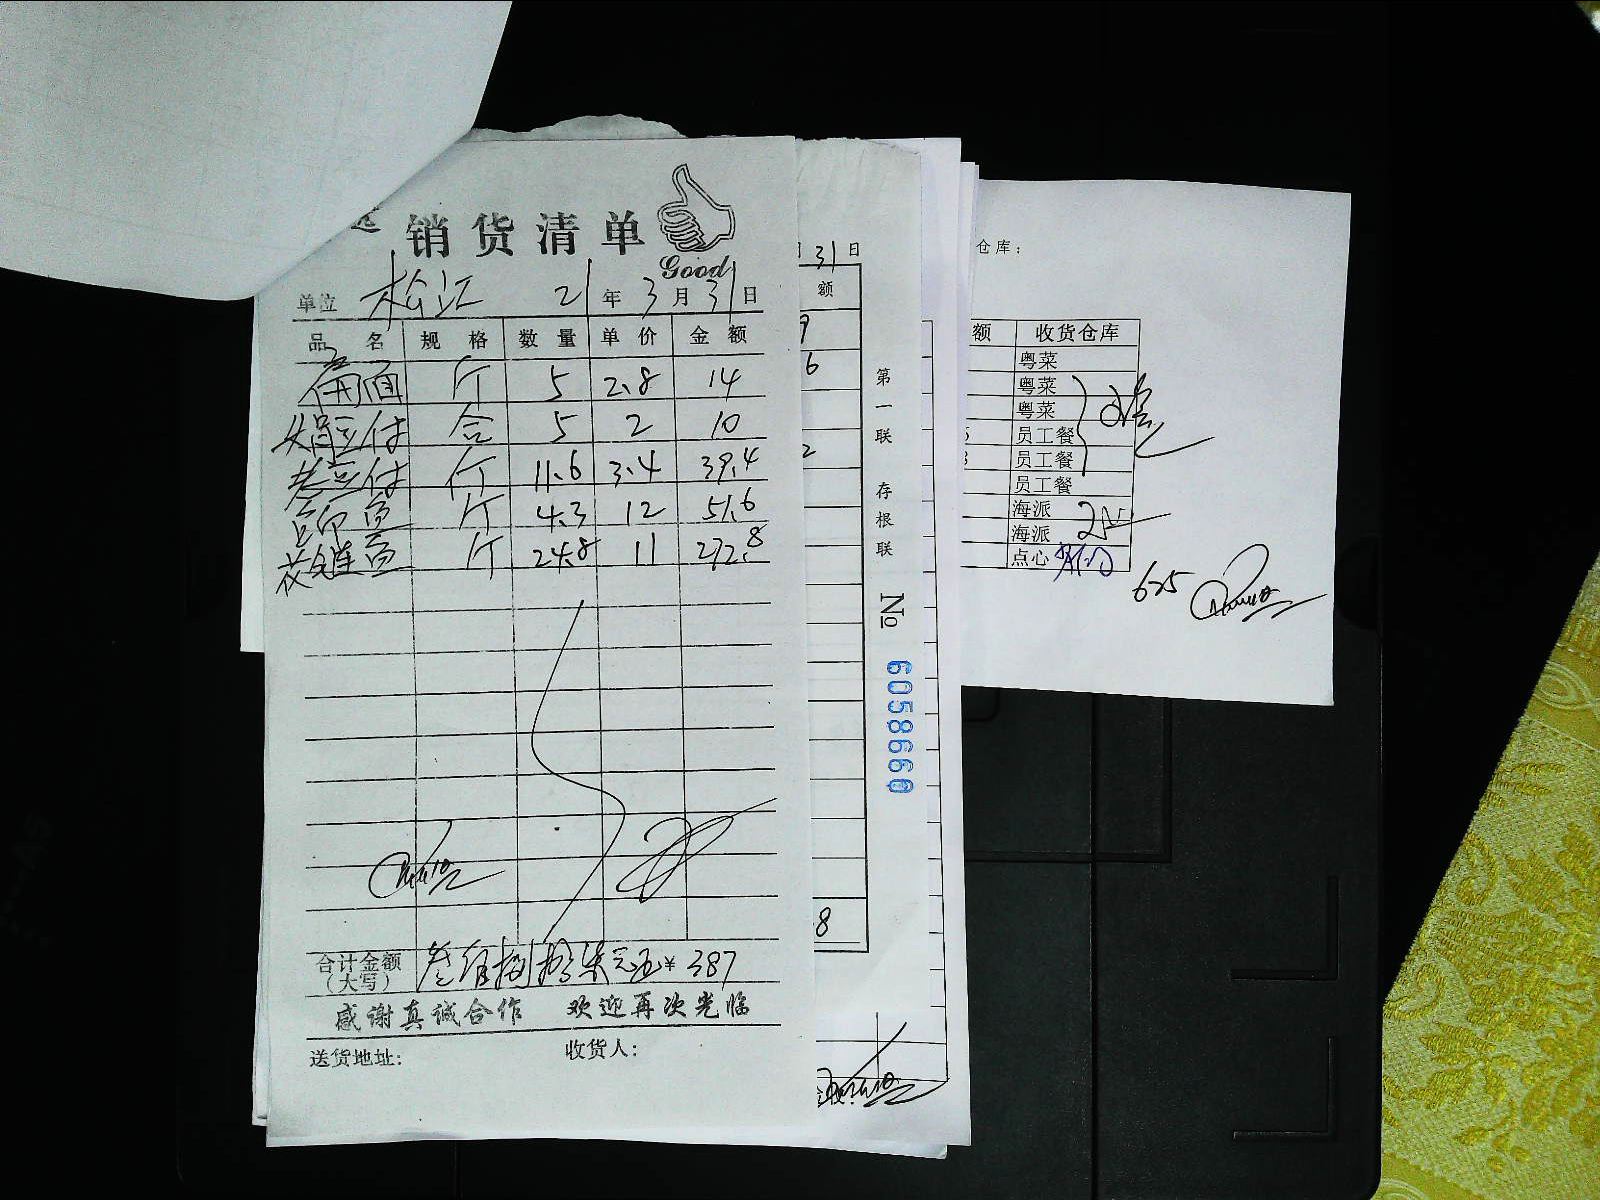 销货清单
Good
单位 松江 21年3月31日
品名 规格 数量 单价 金额
斤 5 2.8 14
合 5 2 10
斤 11.6 3.4 39.4
斤 4.3 12 51.6
花鲢鱼 斤 24.8 11 272.8
合计金额（大写） 叁佰捌拾柒元正 ¥ 387
感谢真诚合作 欢迎再次光临
送货地址: 收货人:
月31日
额
9
6
2
8
第一联 存根联
№ 6058660
仓库:
额 收货仓库
粤菜
粤菜
粤菜
5 员工餐
3 员工餐
员工餐
海派
海派
点心
625